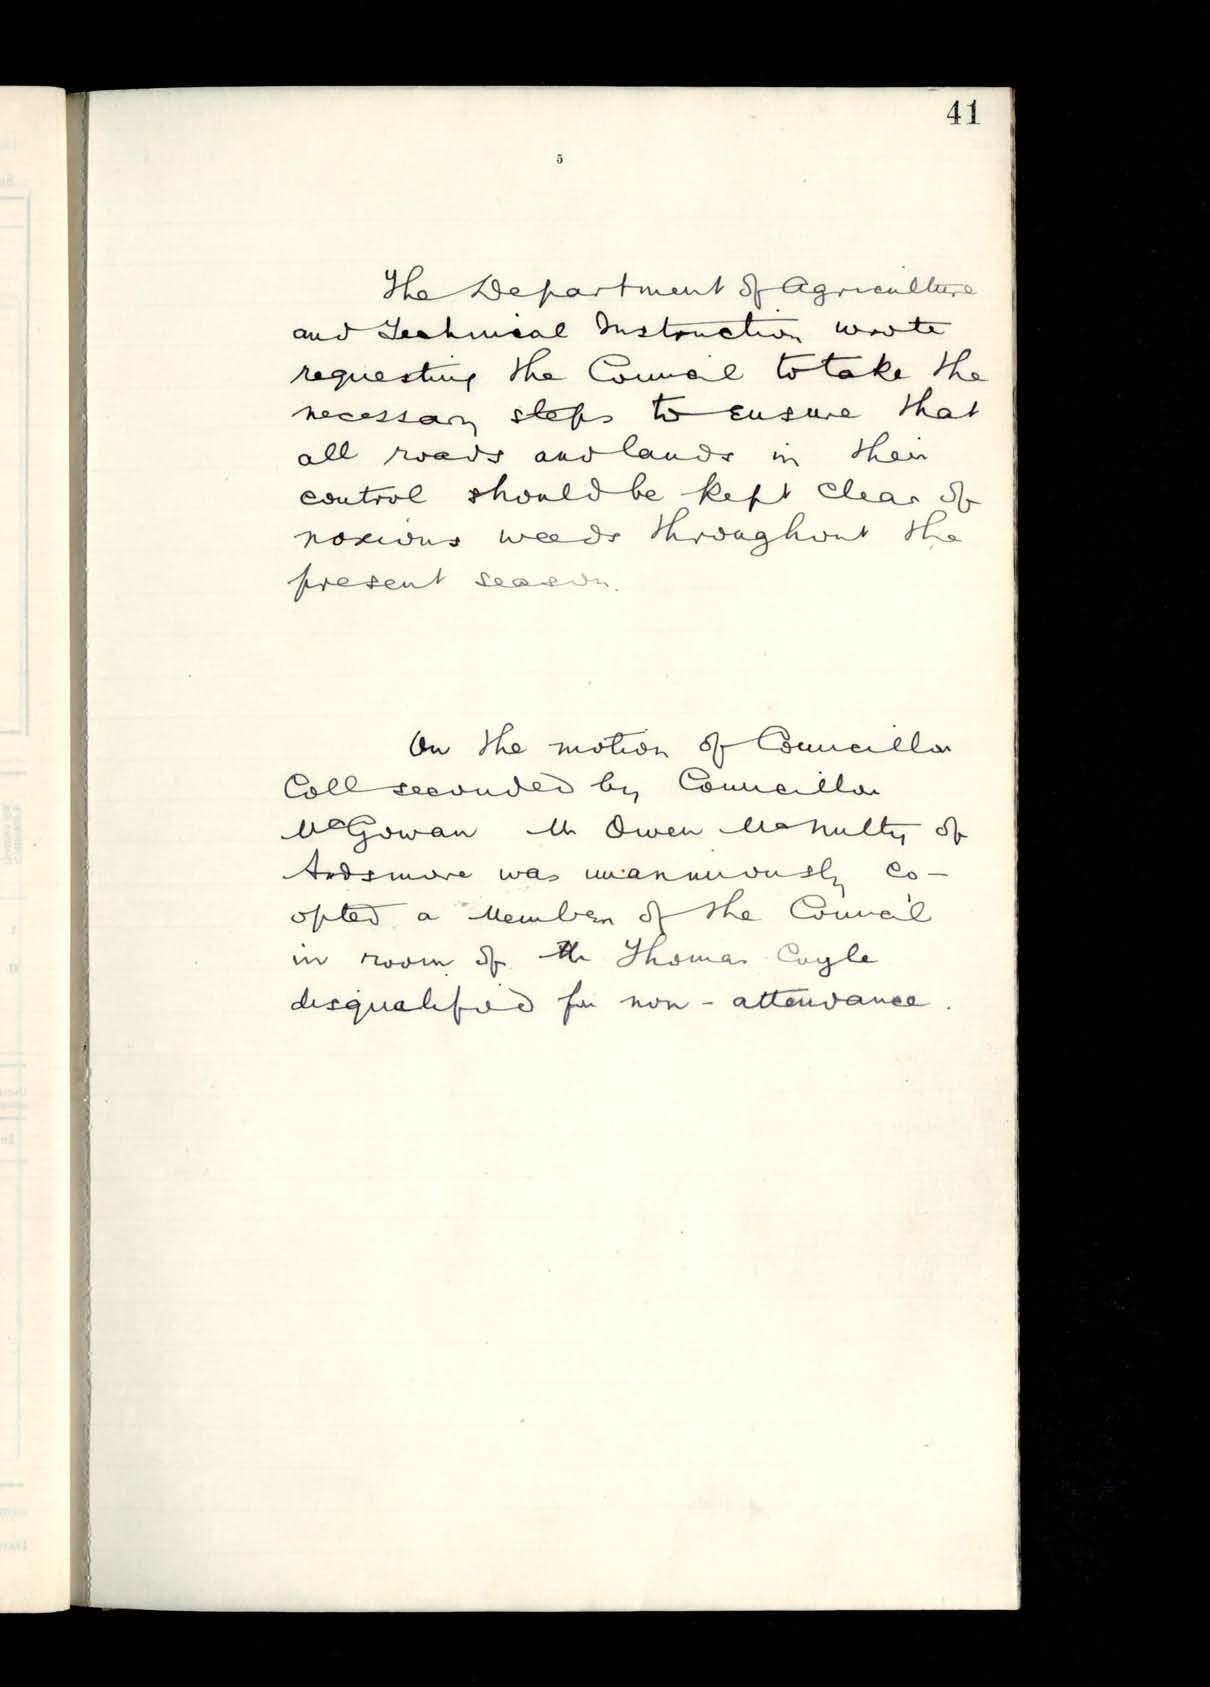 41
5
The Department of Agriculture
and Technical Instruction wrote
requesting the Council to take the
necessary steps to ensure that
all roads and lands in their
control should be kept clear of
noxious weeds throughout the
present season.
On the motion of Councillor
Coll seconded by Councillor
McGowan Mr Owen McNulty of
Ardsmore was unanimously co-
opted a Member of the Council
in room of Mr Thomas Coyle
disqualified for non-attendance.